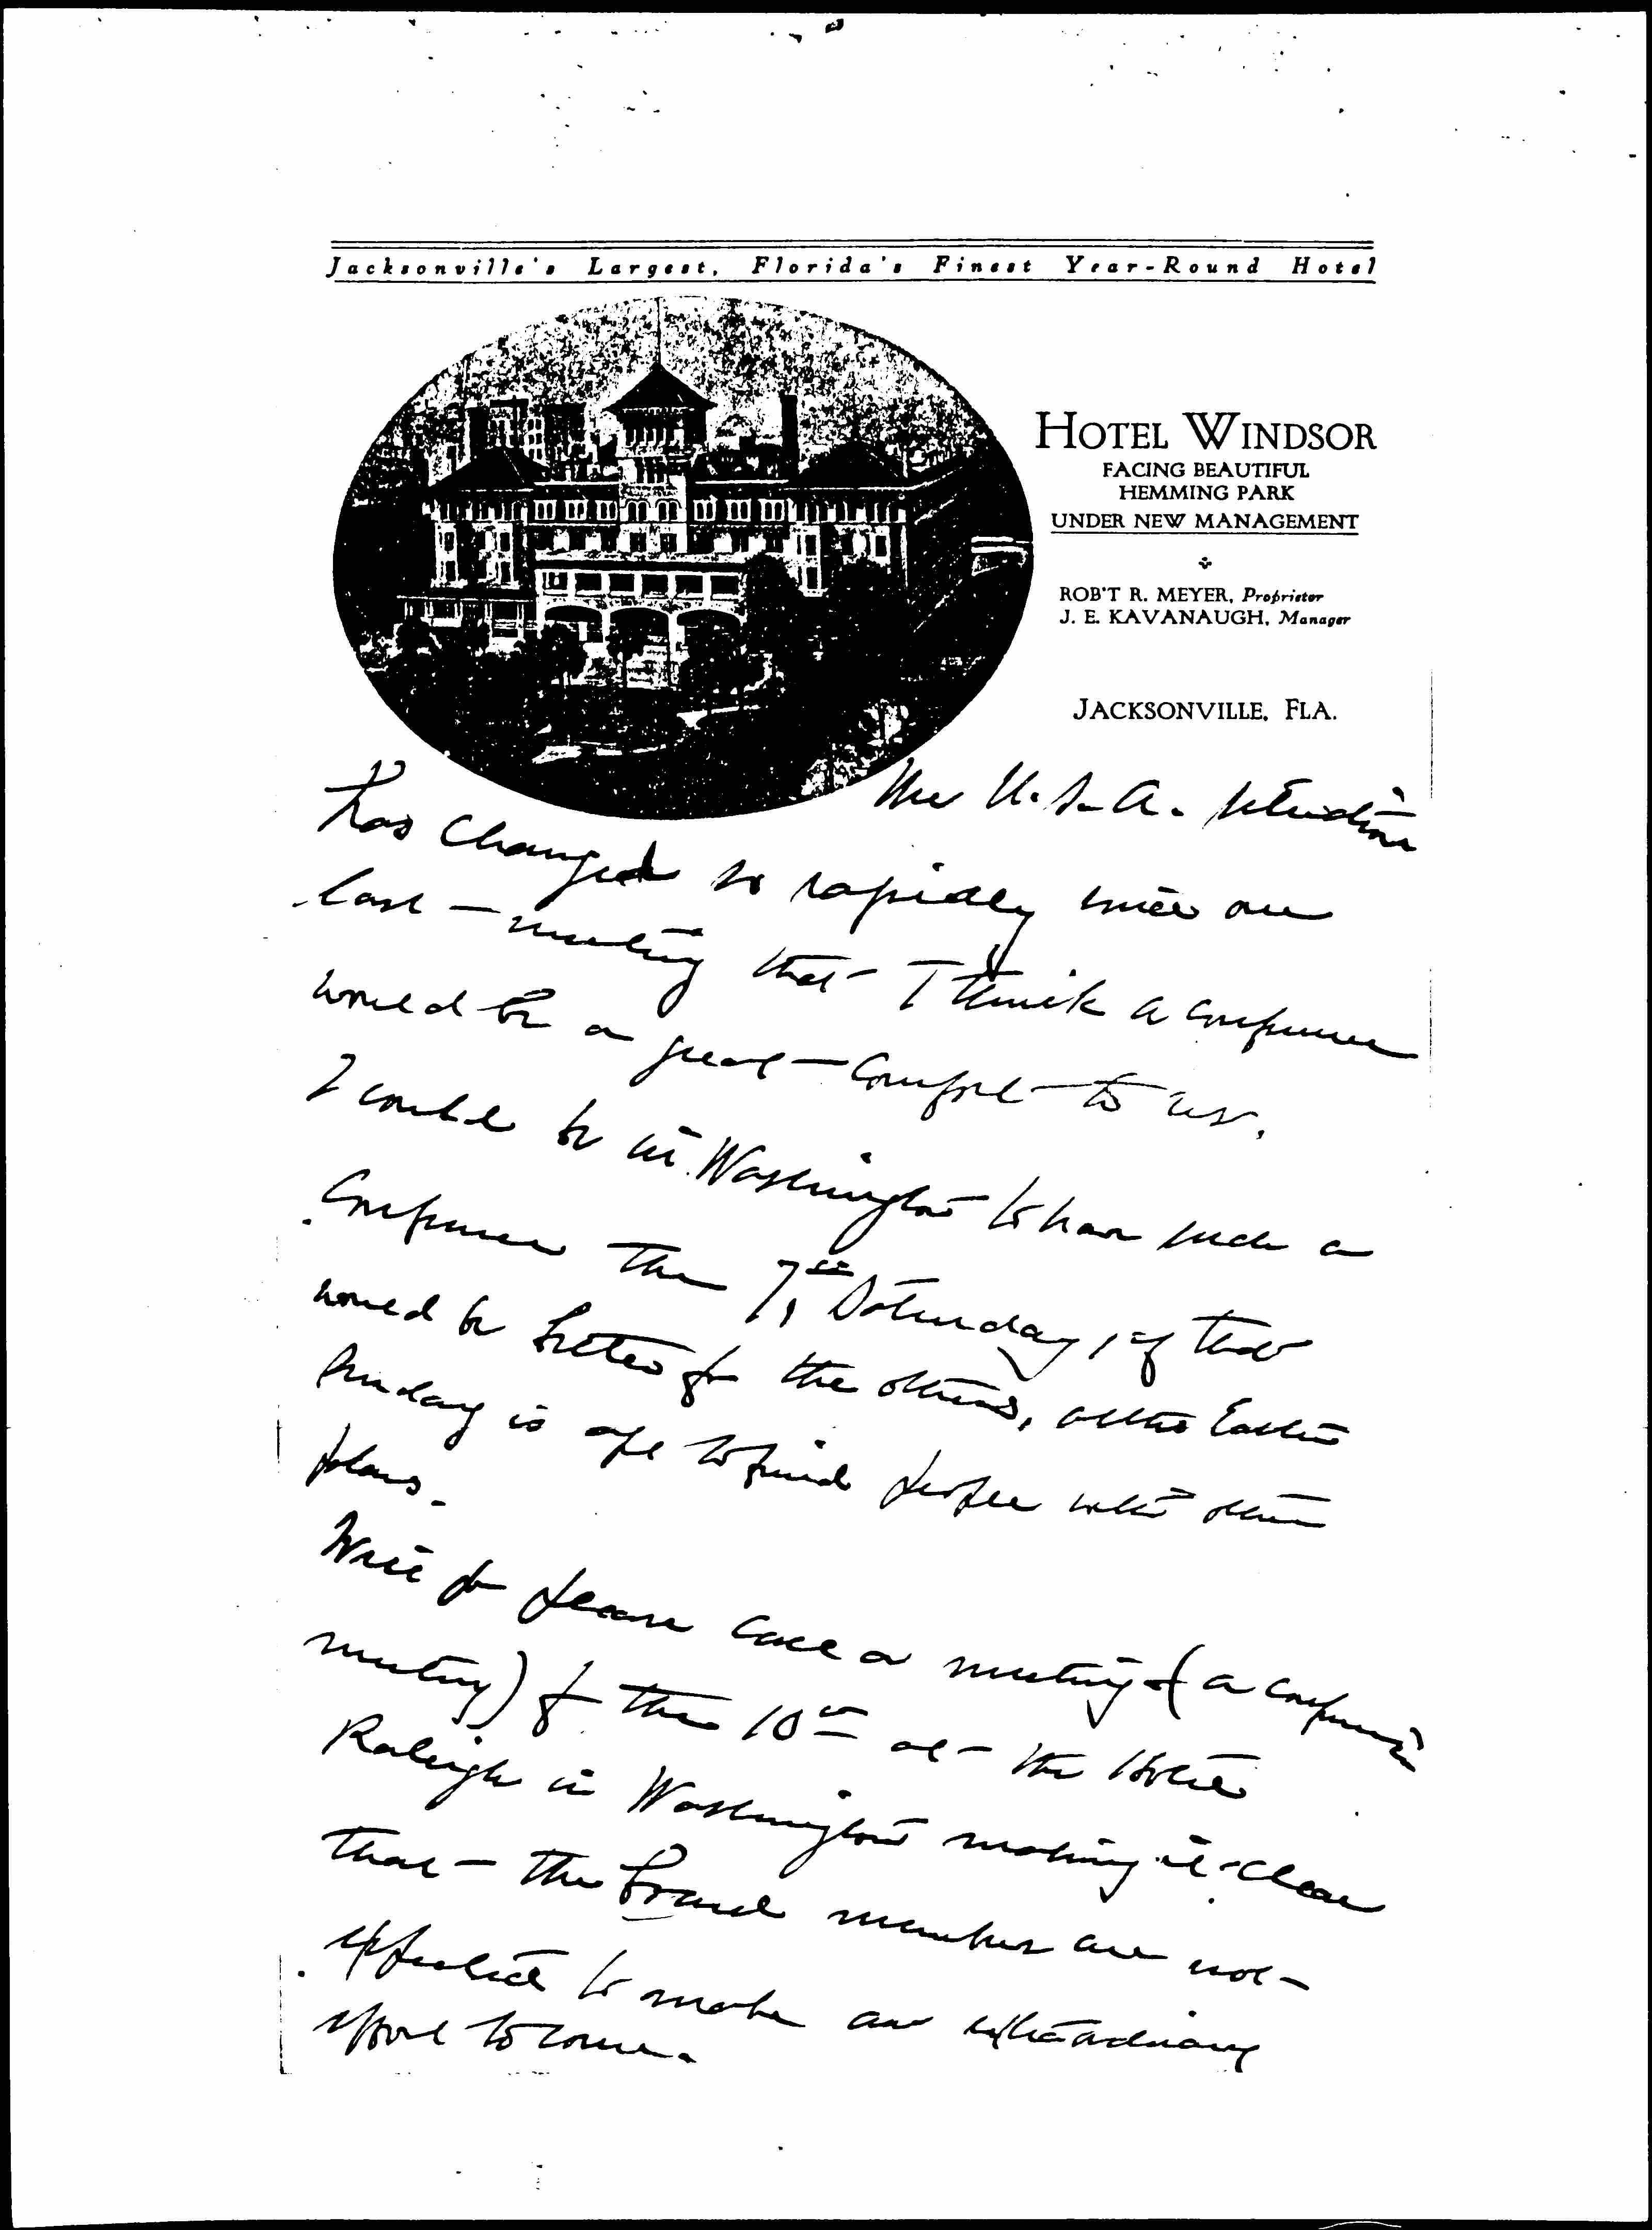 Jacksonville's Largest, Florida's Finest Year-Round Hotel
HOTEL WINDSOR
FACING BEAUTIFUL
HEMMING PARK
UNDER NEW MANAGEMENT
ROB'T R. MEYER, Proprietor
J. E. KAVANAUGH, Manager
JACKSONVILLE, FLA.
The U.S.A. situation
has changed so rapidly since our
last meeting that I think a conference
would be a great comfort to us.
I could be in Washington to have such a
conference the 7th, Saturday, if that
would be better for the others, altho Easter
Sunday is apt to find people with other
plans.
Will you please call a meeting (a conference
meeting) for the 10th at the Hotel
Raleigh in Washington making it clear
that the Board members are not
expected to make an extraordinary
effort to come.